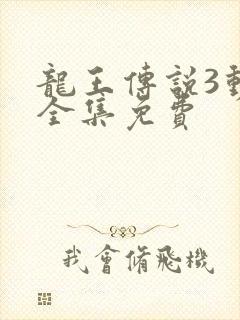 龍王傳說3動
全集免費
我會脩飛機